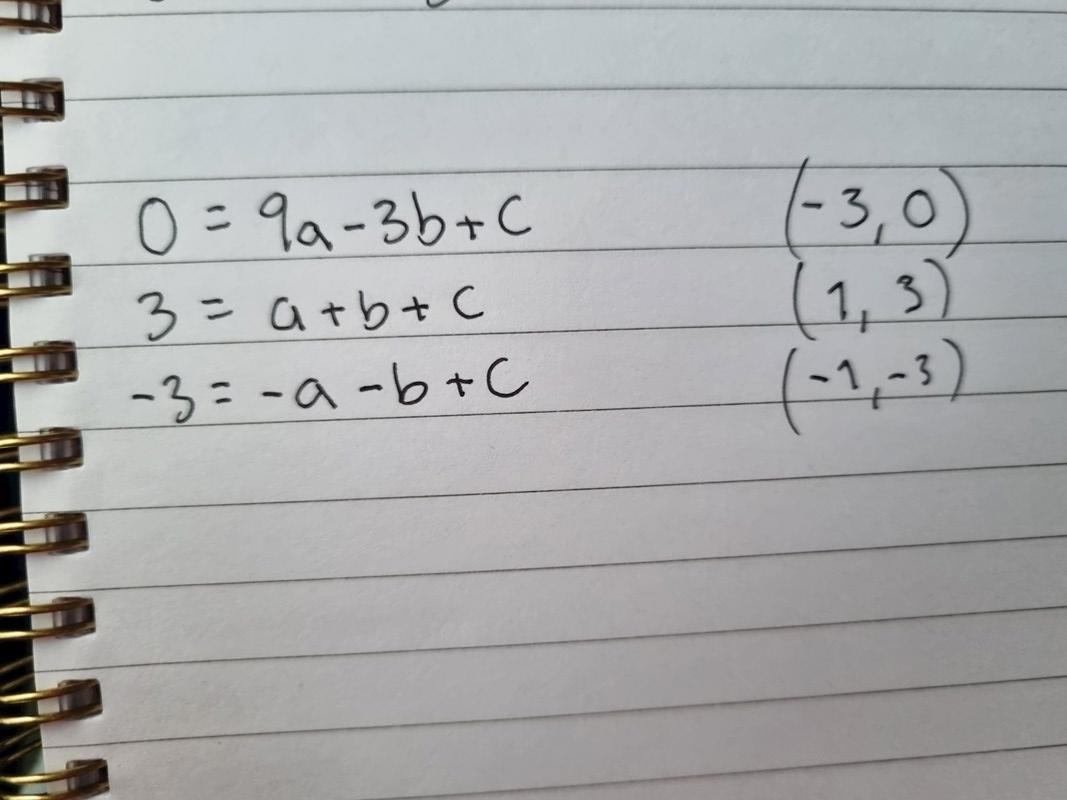 0 = 9a - 3b + c (-3, 0)
3 = a + b + c (1, 3)
-3 = -a - b + c (-1, -3)